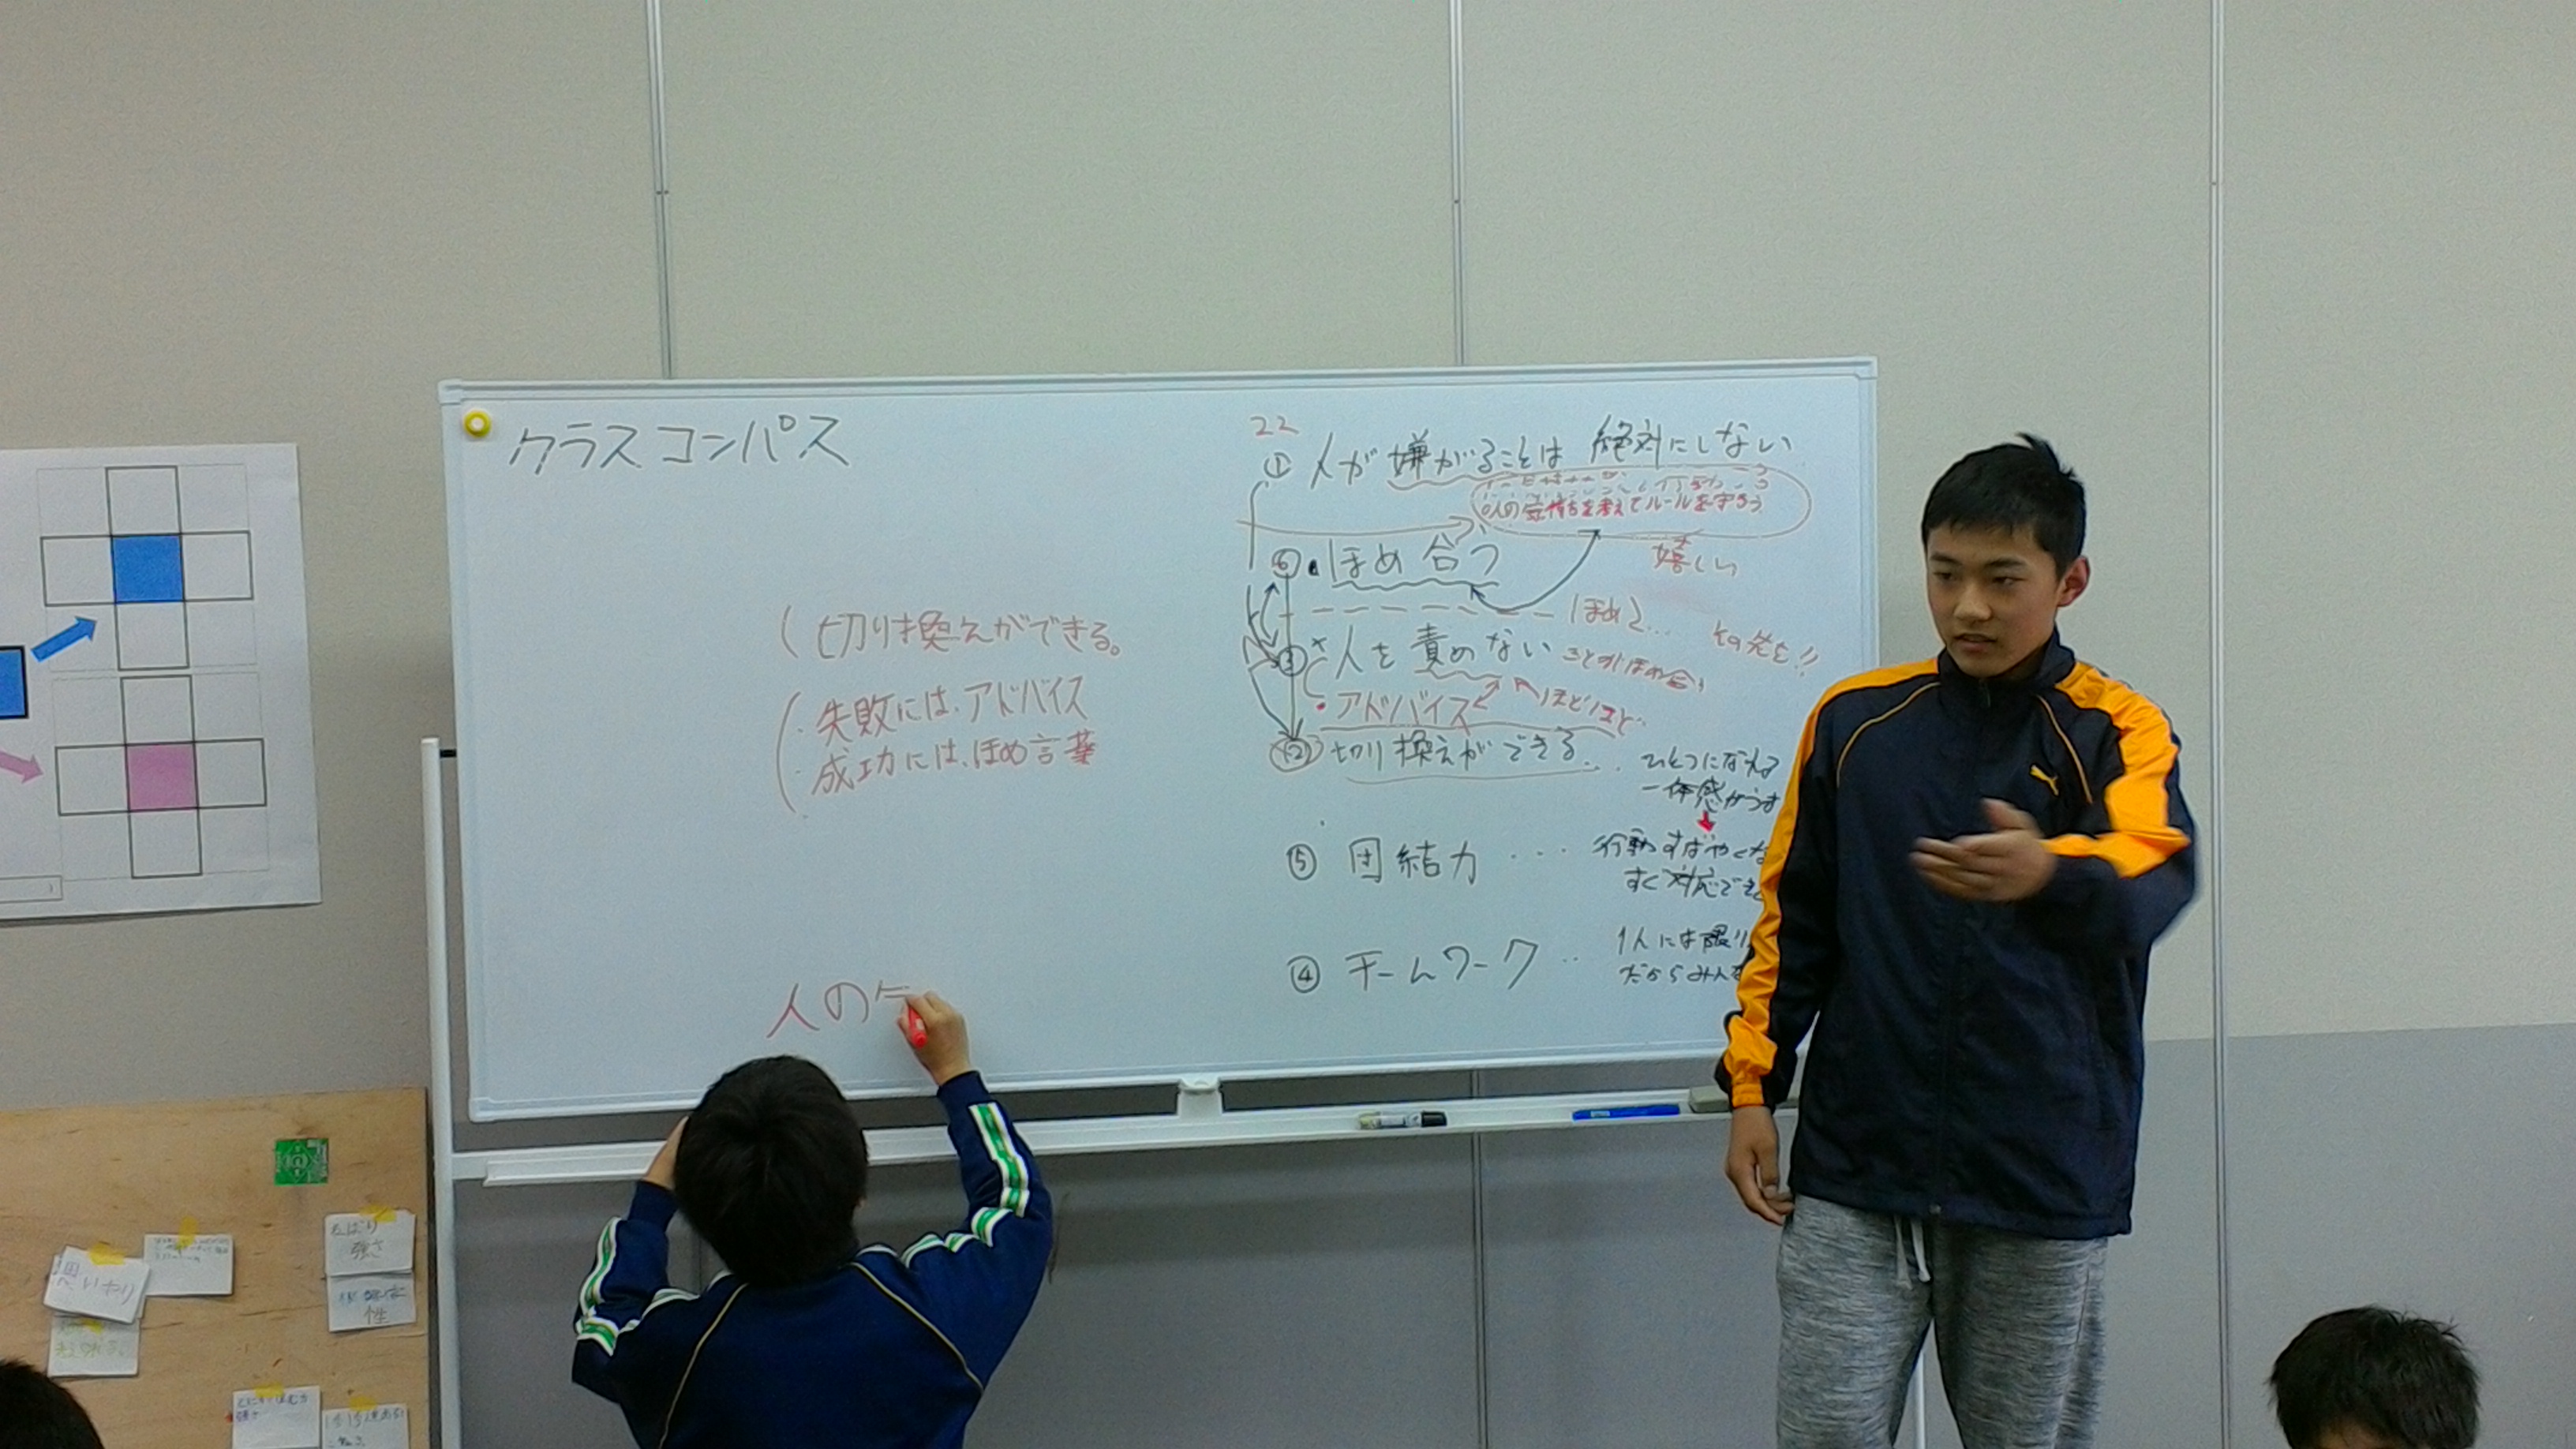 クラスコンパス
切り換えができる。
・失敗には、アドバイス
・成功には、ほめ言葉
人の
22
① 人が嫌がることは 絶対にしない
人の気持ちを考えてルールを守ろう
嬉しい
⑥ ・ほめ合う
ほめる...
③ 人を責めない
その先を!!
・アドバイス
ほどほど..
② 切り換えができる...
ひとつになれる
一体感がうま
⑤ 団結力 ・・・
行動すばやくな
すぐ対応でき
④ チームワーク ・・
1人には限り
だからみんな
ねばり
強さ
思いやり
性